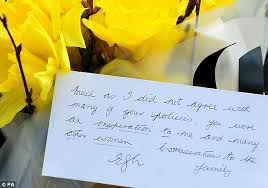 Much as I did not agree with
many of your policies. you were
an inspiration to me and many
other women
Commiserations to the
family
© PA